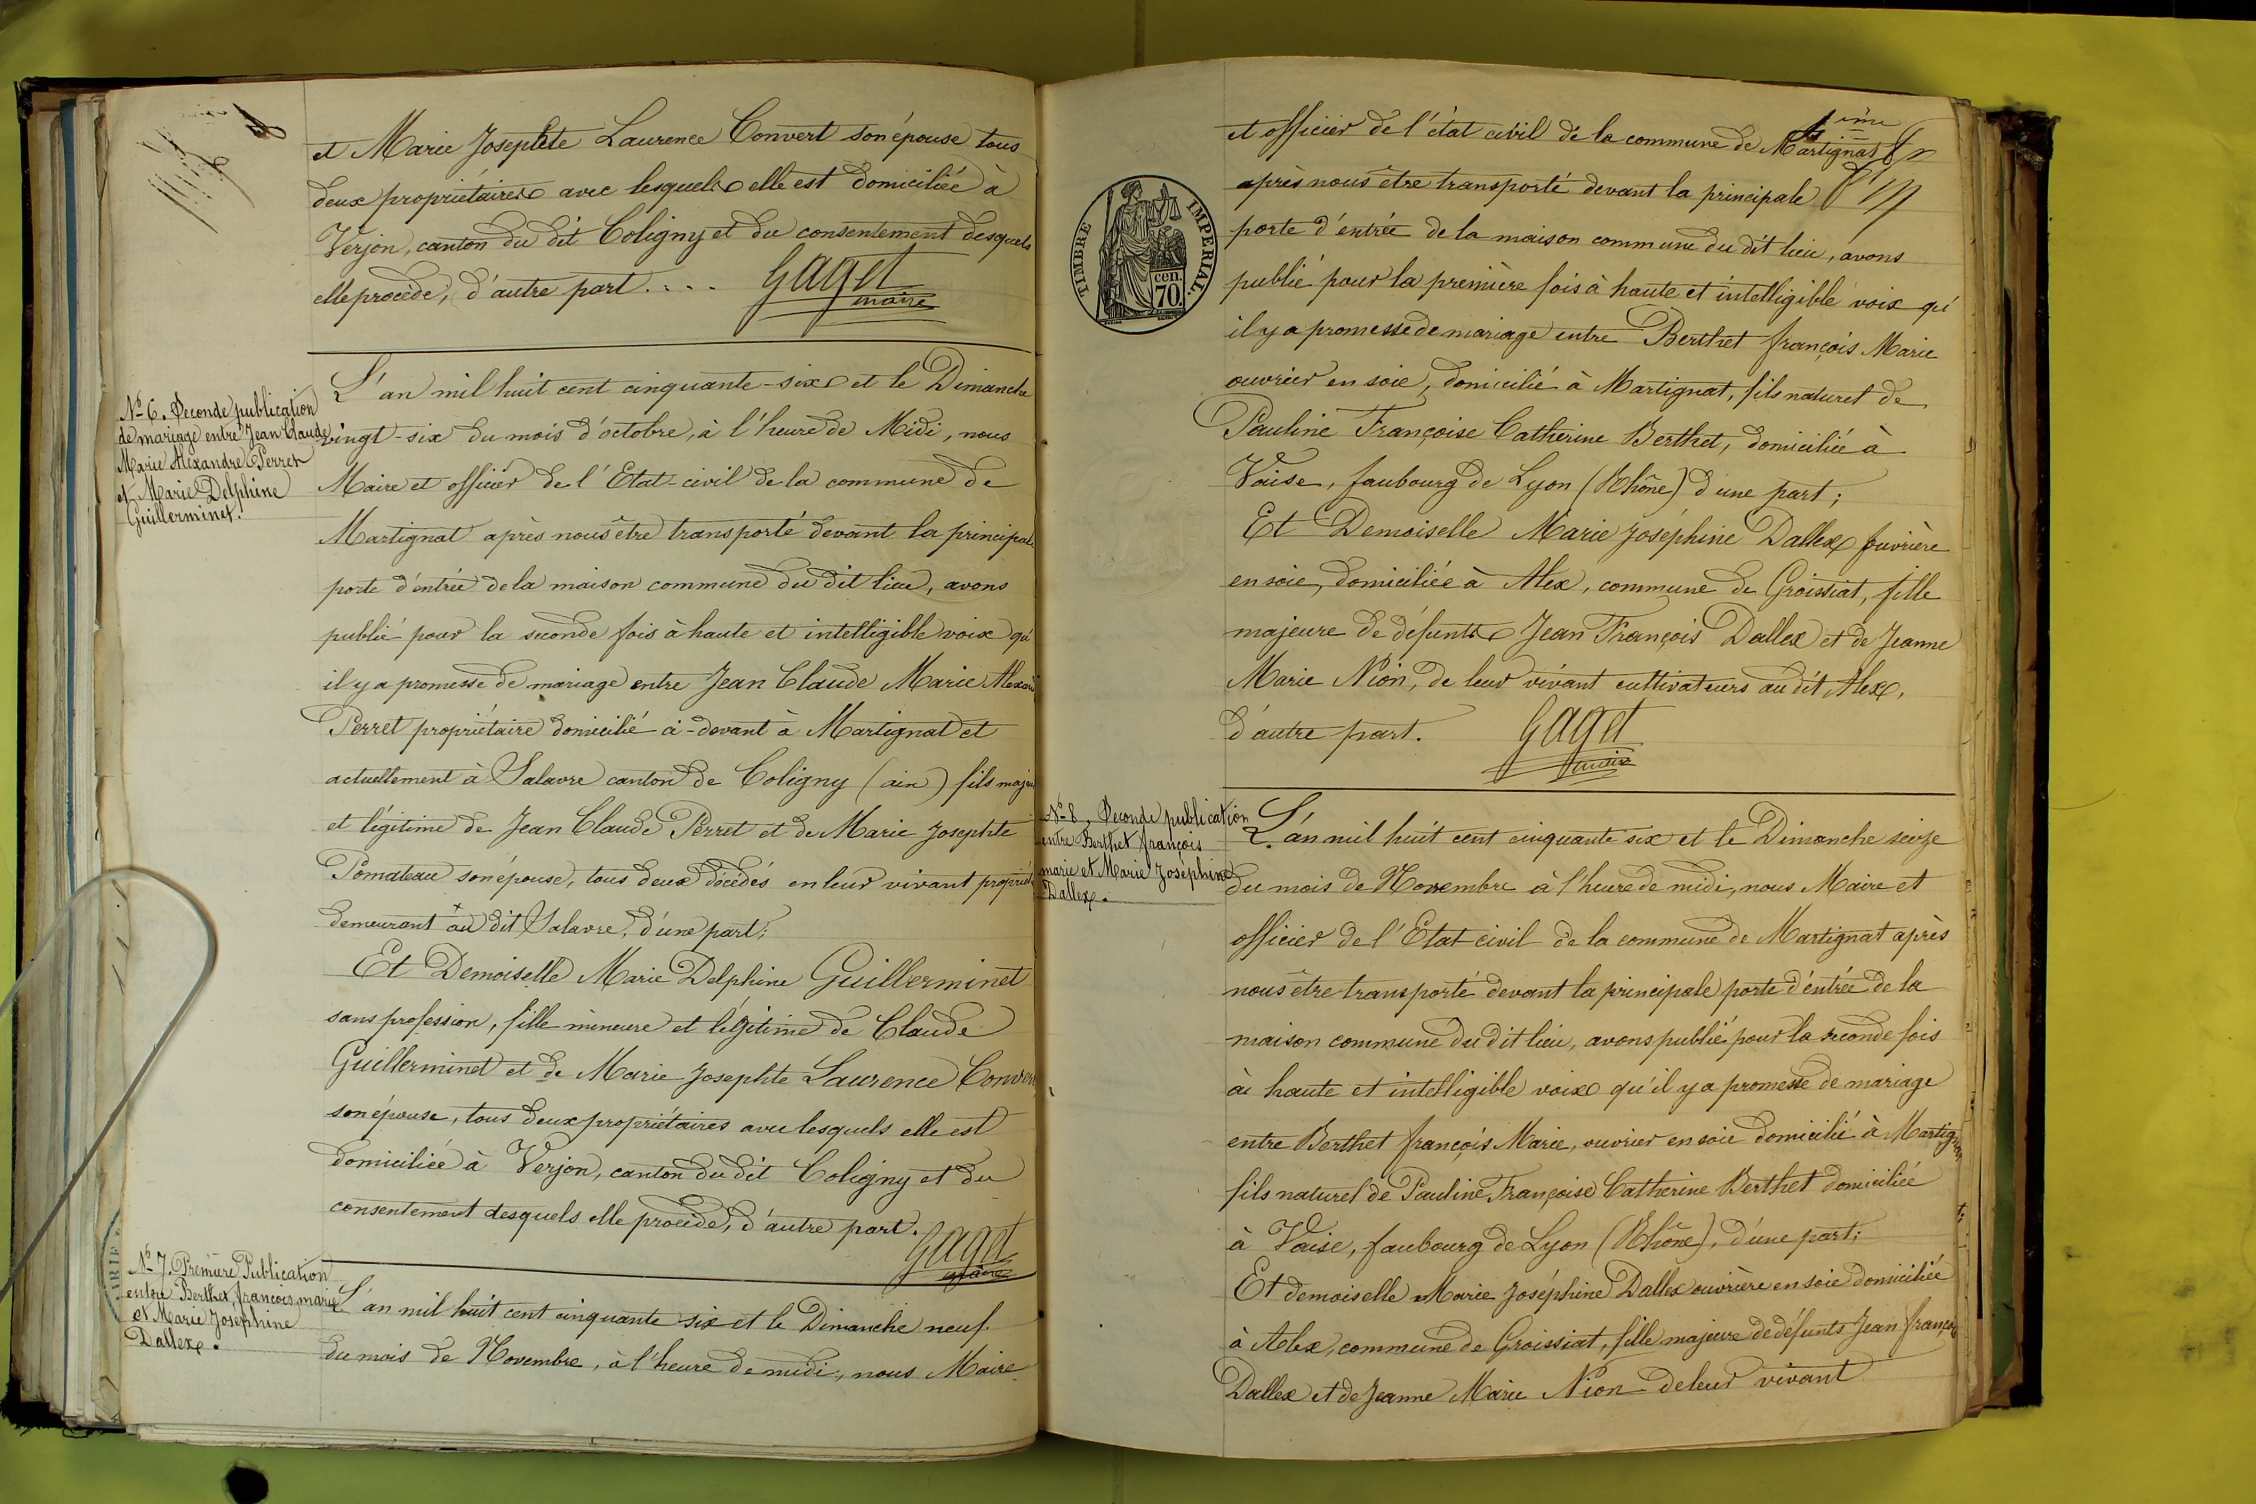 et Marie Josephte Laurence Convert son épouse tous
deux propriétaires avec lesquels elle est domiciliée à
Verjon, canton du dit Coligny et du consentement desquels
elle procède, d'autre part....
Gaget
maire
N° 6. Seconde publication
de mariage entre Jean Claude
Marie Alexandre Perret
et Marie Delphine
Guillerminet.
L'an mil huit cent cinquante-six et le Dimanche
vingt-six du mois d'octobre, à l'heure de Midi, nous
Maire et officier de l'Etat-civil de la commune de
Martignat après nous être transporté devant la principale
porte d'entrée de la maison commune du dit lieu, avons
publié pour la seconde fois à haute et intelligible voix qu'
il y a promesse de mariage entre Jean Claude Marie
Perret propriétaire domicilié ci-devant à Martignat et
actuellement à Salavre canton de Coligny (ain) fils
et légitime de Jean Claude Perret et de Marie Josephte
Pomateau son épouse, tous deux décédés en leur vivant
demeurant au dit Salavre, d'une part;
Et Demoiselle Marie Delphine Guillerminet
sans profession, fille mineure et légitime de Claude
Guillerminet et de Marie Josephte Laurence
son épouse, tous deux propriétaires avec lesquels elle est
domiciliée à Verjon, canton du dit Coligny et du
consentement desquels elle procède, d'autre part.
Gaget
maire
N° 7. Première Publication
entre Berthet françois marie
et Marie Joséphine
Dallex.
L'an mil huit cent cinquante six et le Dimanche neuf
du mois de Novembre, à l'heure de midi, nous Maire
et officier de l'état civil de la commune de Martignat
après nous être transporté devant la principale
porte d'entrée de la maison commune du dit lieu, avons
publié pour la première fois à haute et intelligible voix qu'
il y a promesse de mariage entre Berthet françois Marie
ouvrier en soie, domicilié à Martignat, fils naturel de
Pauline Françoise Catherine Berthet, domiciliée à
Vaise, faubourg de Lyon (Rhône) d'une part;
Et Demoiselle Marie Joséphine Dallex ouvrière
en soie, domiciliée à Alex, commune de Groissiat, fille
majeure de défunts Jean François Dallex et de Jeanne
Marie Nion, de leur vivant cultivateurs au dit Alex,
d'autre part.
Gaget
maire
TIMBRE IMPERIAL.
cen.
70.
N° 8. Seconde publication
entre Berthet françois
marie et Marie Joséphine
Dallex.
L'an mil huit cent cinquante six et le Dimanche seize
du mois de Novembre à l'heure de midi, nous Maire et
officier de l'Etat civil de la commune de Martignat après
nous être transporté devant la principale porte d'entrée de la
maison commune du dit lieu, avons publié pour la seconde fois
à haute et intelligible voix qu'il y a promesse de mariage
entre Berthet françois Marie, ouvrier en soie domicilié à Martignat
fils naturel de Pauline Françoise Catherine Berthet domiciliée
à Vaise, faubourg de Lyon (Rhône), d'une part;
Et demoiselle Marie Joséphine Dallex ouvrière en soie domiciliée
à Alex, commune de Groissiat, fille majeure de défunts Jean françois
Dallex et de Jeanne Marie Nion de leur vivant